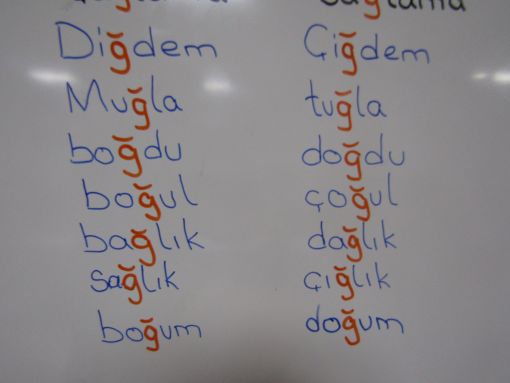 Diğdem Çiğdem
Muğla tuğla
boğdu doğdu
boğul çoğul
bağlık dağlık
sağlık çığlık
boğum doğum